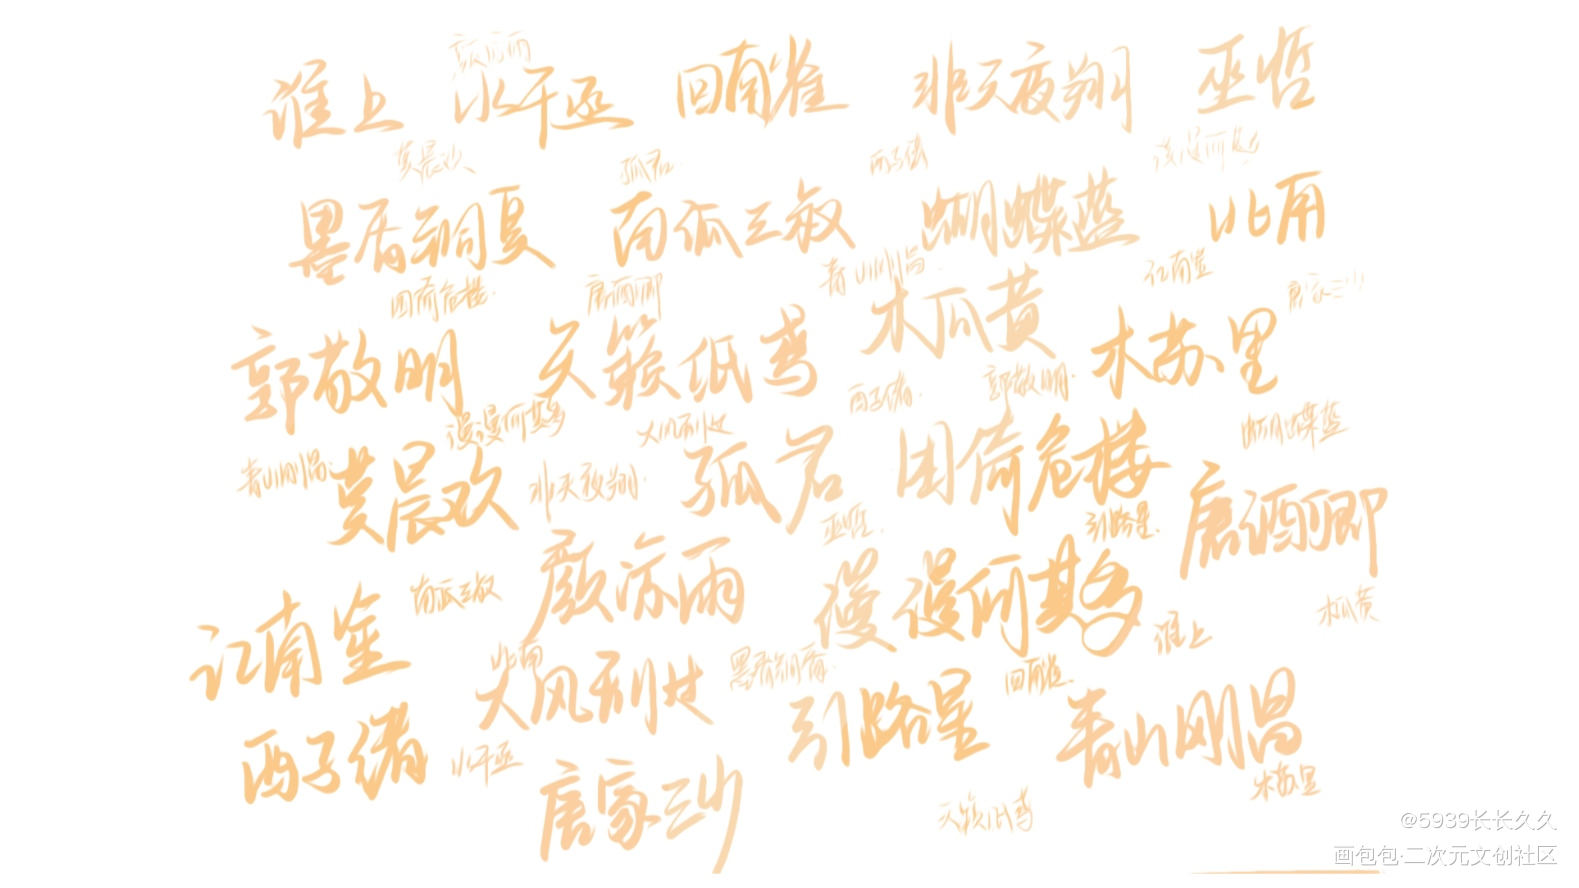 颜凉雨
淮上 水千丞 回南雀 非天夜翔 巫哲
莫晨欢 孤君 西子绪 漫漫何其多
墨香铜臭 南派三叔 蝴蝶蓝 北南
困倚危楼 唐酒卿 青山刚昌 江南笙 唐家三少
郭敬明 天籁纸鸢 木瓜黄 木苏里
漫漫何其多 大风刮过 西子绪 郭敬明 蝴蝶蓝
青山刚昌 莫晨欢 非天夜翔 孤君 困倚危楼
巫哲 引路星 唐酒卿
江南笙 南派三叔 颜凉雨 漫漫何其多 淮上 木瓜黄
北南 大风刮过 墨香铜臭 引路星 回南雀 青山刚昌
西子绪 水千丞 唐家三少 天籁纸鸢 木苏里
@5939长长久久
画包包·二次元文创社区